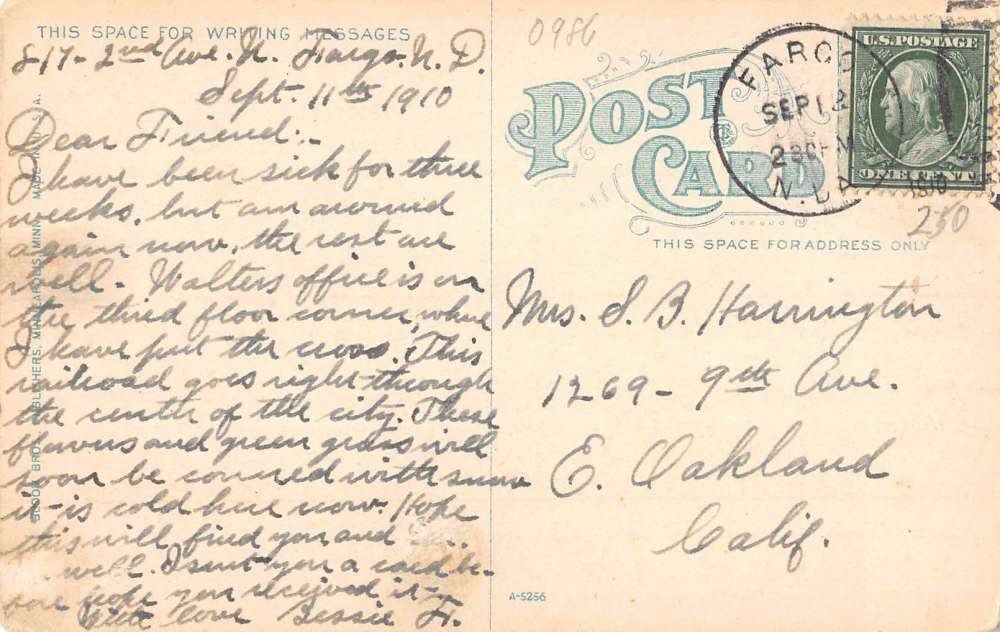 THIS SPACE FOR WRITING MESSAGES
817-2nd Ave. N. Fargo. N. D.
Sept. 11th 1910
Dear Friend:-
I have been sick for three
weeks, but am around
again now, the rest are
well. Walters office is on
the third floor corner, where
I have put the cross. This
railroad goes right through
the center of the city. These
flowers and green grass will
soon be covered with snow
it is cold here now. Hope
this will find you and
well. I sent you a card be-
fore hope you received it
With love Bessie H.
BLOOM BROS. PUBLISHERS, MINNEAPOLIS, MINN. MADE IN U.S.A.
0986
POST
CARD
THIS SPACE FOR ADDRESS ONLY
FARGO
SEP 12
2 30 PM
N. DAK
1910
U.S. POSTAGE
ONE CENT
250
Mrs. S. B. Harrington
1269-9th Ave.
E. Oakland
Calif.
A-5256